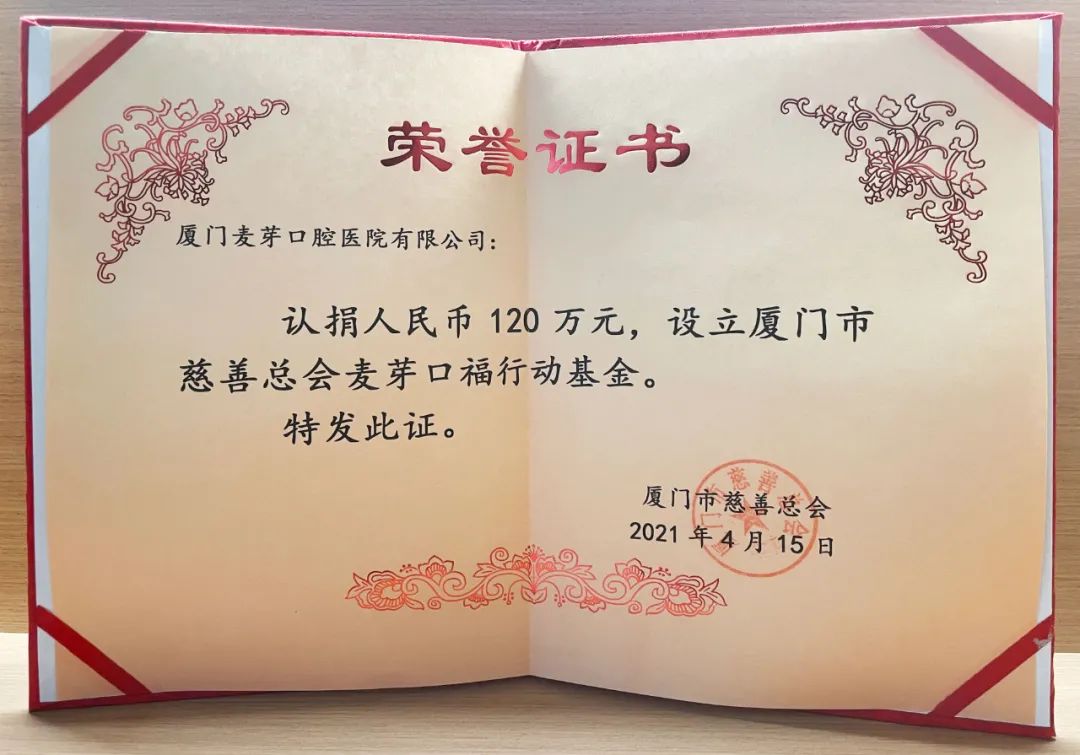 荣誉证书
厦门麦芽口腔医院有限公司:
认捐人民币 120 万元，设立厦门市
慈善总会麦芽口福行动基金。
特发此证。
厦门市慈善总会
2021 年 4 月 15 日
厦门市慈善总会